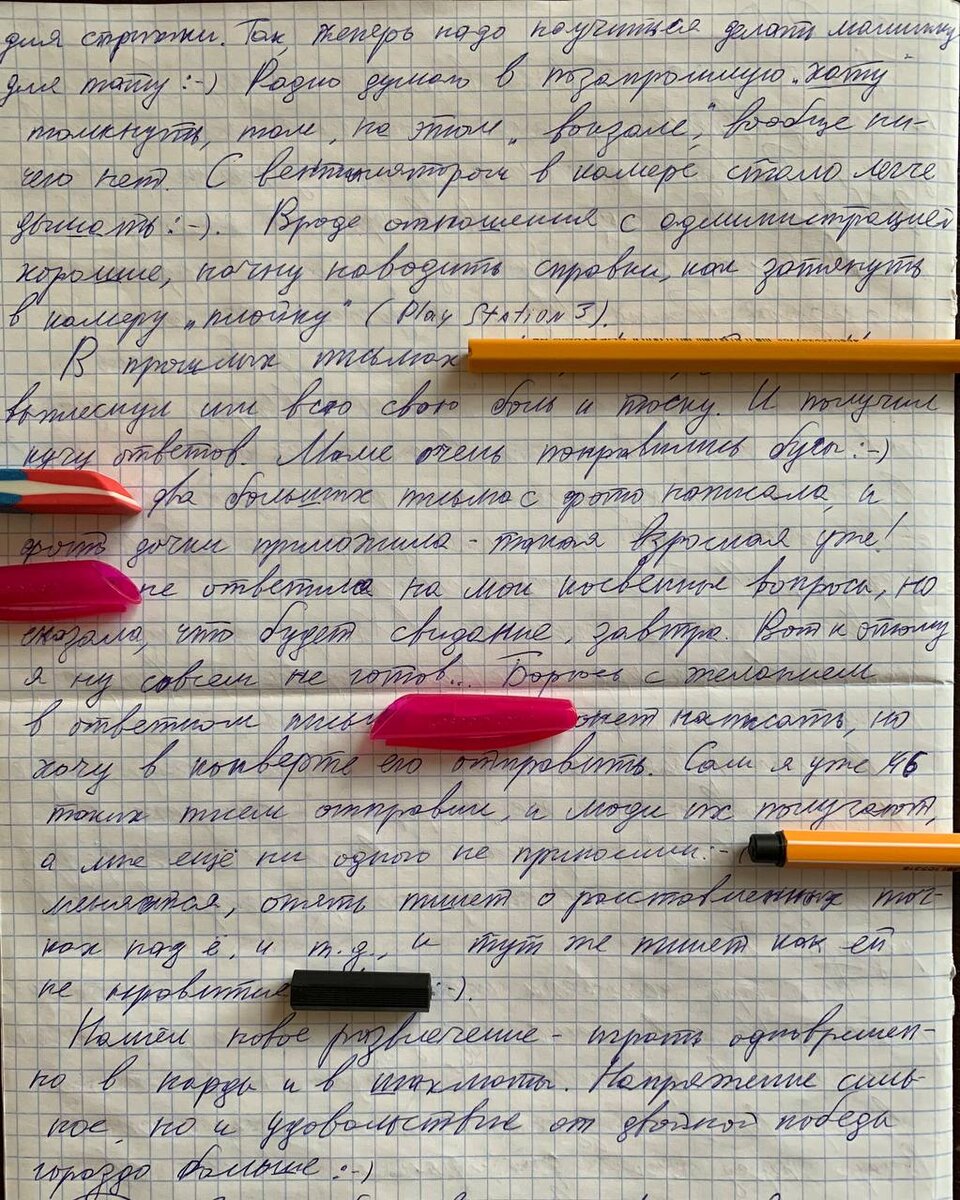 для стрижки. Так, теперь надо научиться делать машинку
для тату :-) Радио думаю в позапрошлую „хату"
толкнуть, там, на этом „вокзале", вообще ни-
чего нет. С вентилятором в камере стало легче
дышать :-). Вроде отношения с администрацией
хорошие, начну наводить справки, как затянуть
в камеру „плойку" (Play Station 3).
В прошлых письмах
выплеснул им всю свою боль и тоску. И получил
кучу ответов. Маме очень понравились бусы :-)
два больших письма с фото написала, и
фото дочки приложила - такая взрослая уже!
не ответила на мои косвенные вопросы, но
сказала, что будет свидание, завтра. Вот к этому
я ну совсем не готов... Борюсь с желанием
в ответном написать, но
хочу в конверте его отправить. Сам я уже 46
таких писем отправил, и люди их получают,
а мне ещё ни одного не приносили :-
меняется, опять пишет о расставленных точ-
ках над ё, и т.д., и тут же пишет как ей
не :-).
Нашёл новое развлечение - играть одновремен-
но в нарды и в шахматы. Напряжение силь-
ное, но и удовольствие от двойной победы
гораздо больше :-)